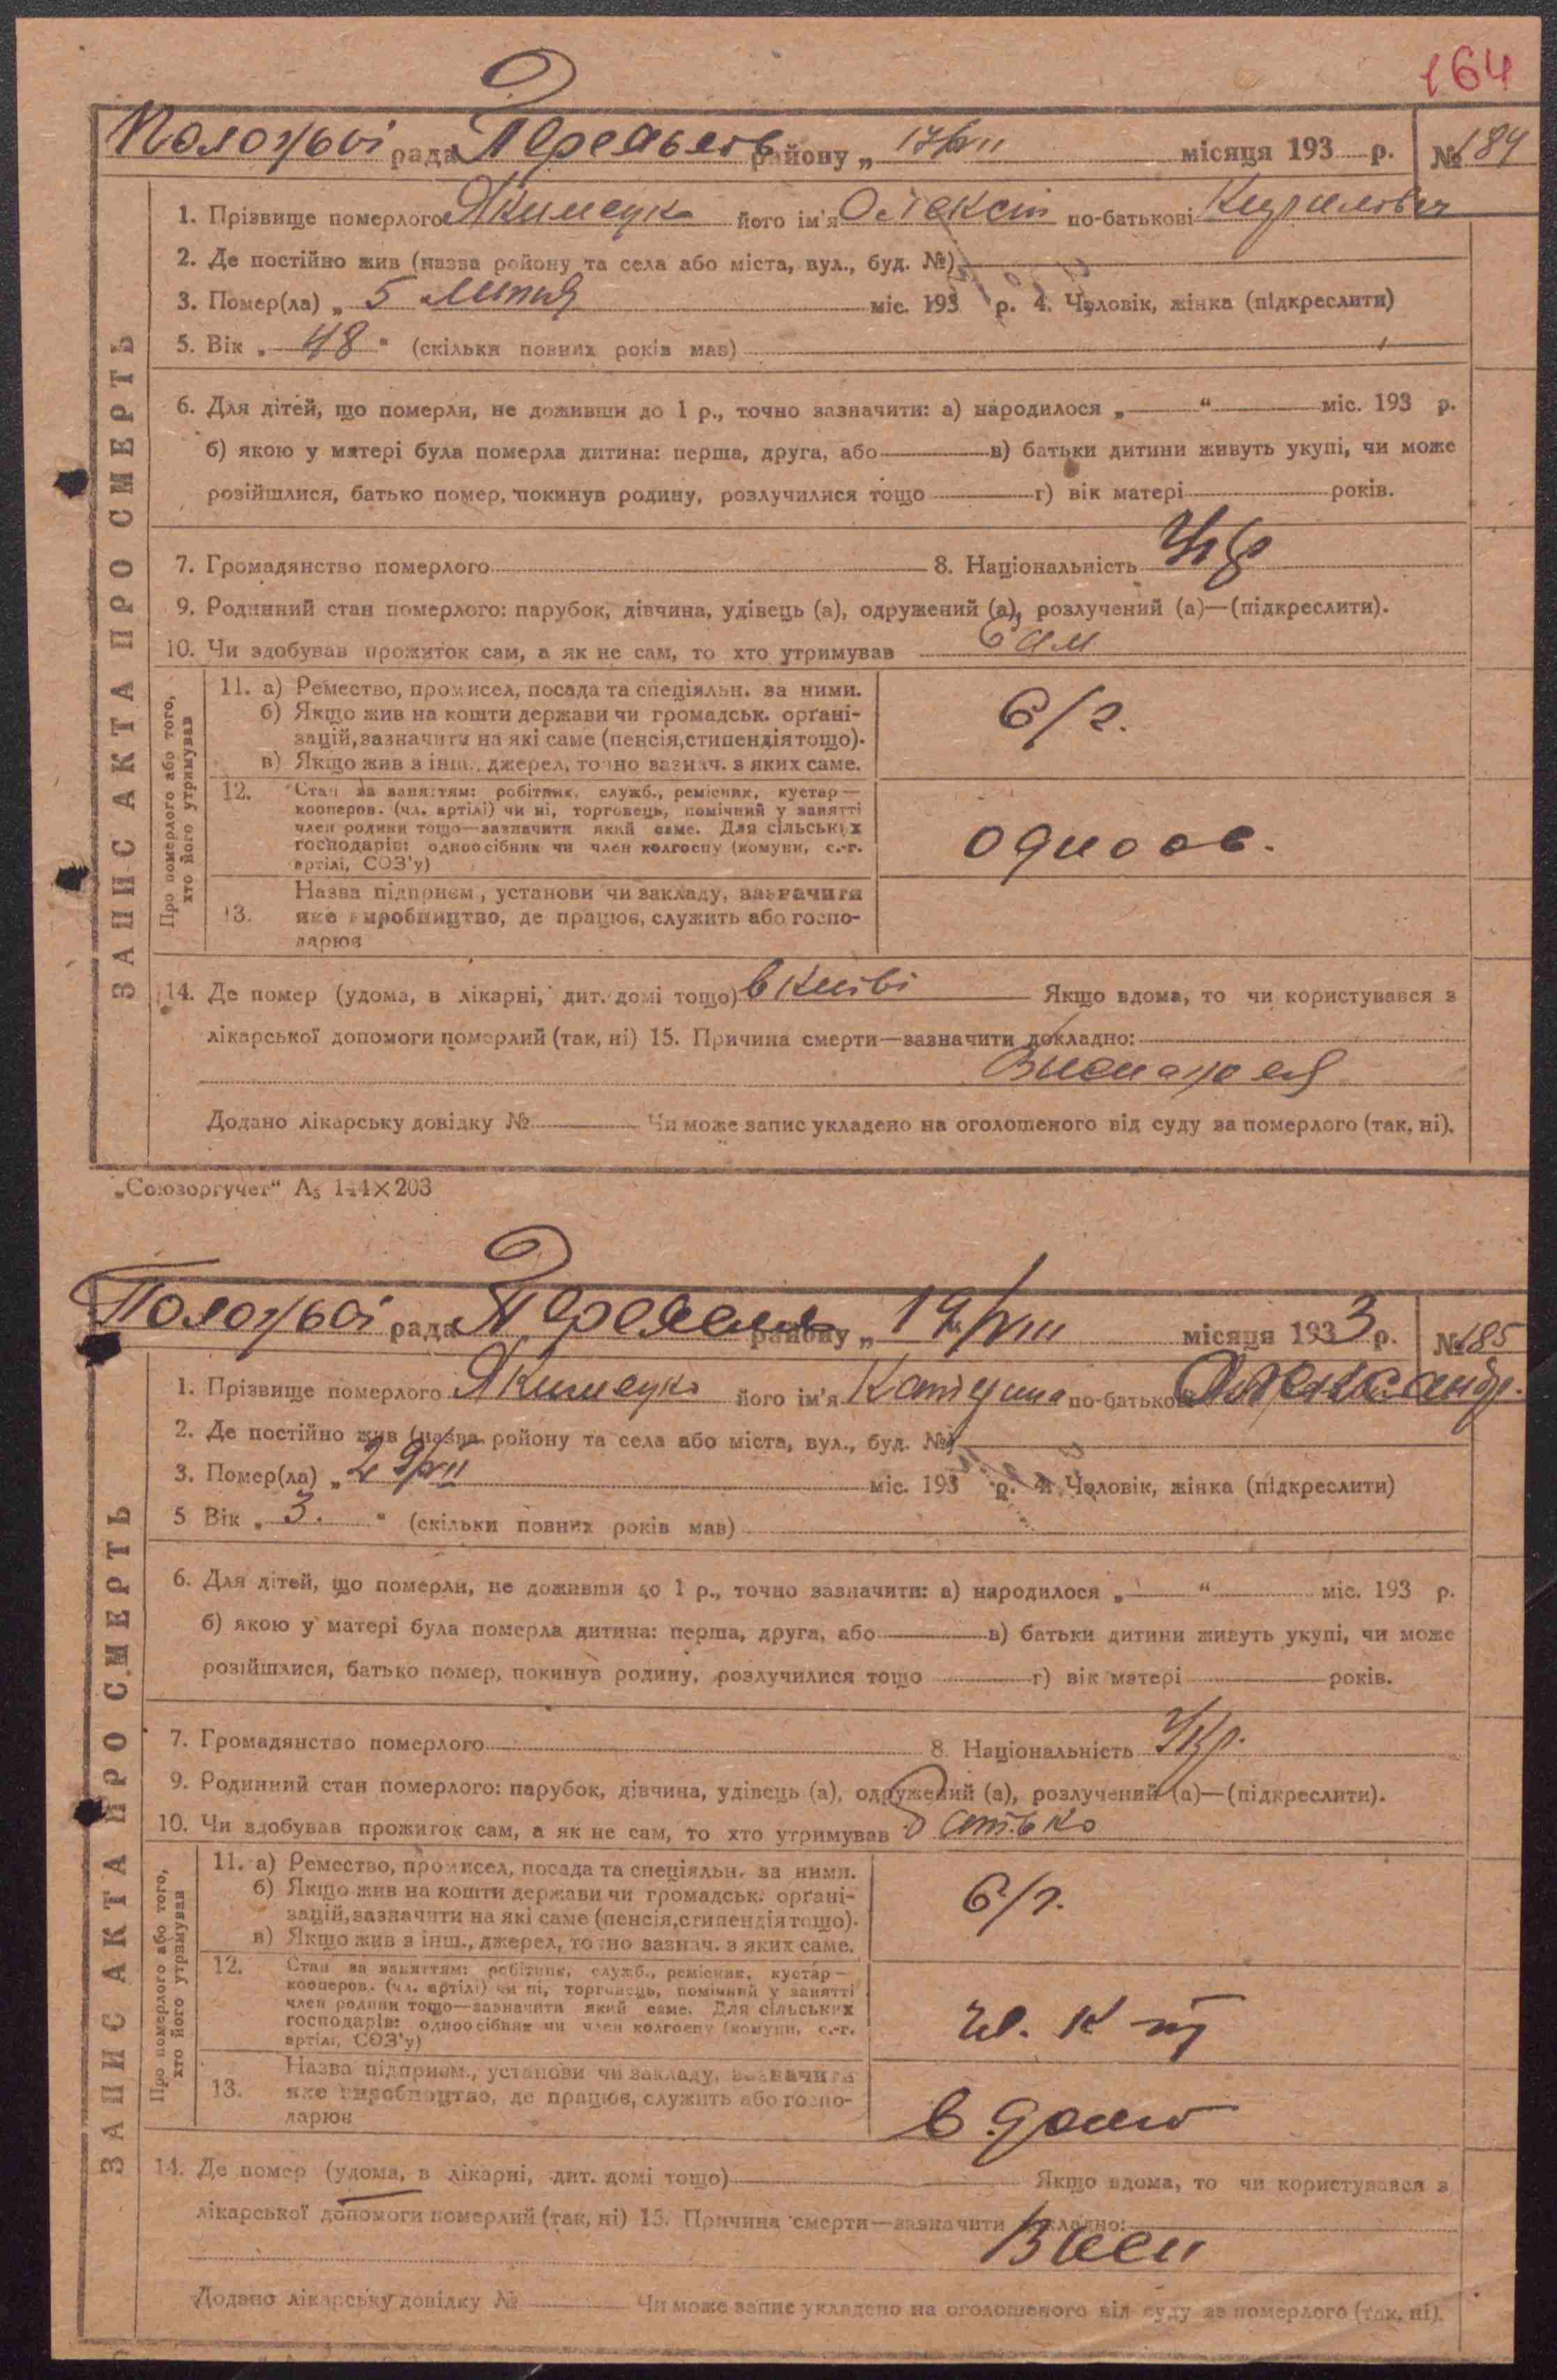 164
рада району „ 17/VII місяця 193 р. № 184
1. Прізвище померлого Якименко його ім'я по-батькові Кирилович
2. Де постійно жив (назва району та села або міста, вул., буд. №)
3. Помер(ла) „ 5 липня міс. 193 р. 4. Чоловік, жінка (підкреслити)
5. Вік „ 48 " (скільки повних років мав)
6. Для дітей, що померли, не доживши до 1 р., точно зазначити: а) народилося „ “ міс. 193 р.
б) якою у матері була померла дитина: перша, друга, або в) батьки дитини живуть укупі, чи може
розійшлися, батько помер, покинув родину, розлучилися тощо г) вік матері років.
7. Громадянство померлого 8. Національність Укр
9. Родинний стан померлого: парубок, дівчина, удівець (а), одружений (а), розлучений (а)—(підкреслити).
10. Чи здобував прожиток сам, а як не сам, то хто утримував Сам
ЗАПИС АКТА ПРО СМЕРТЬ
Про померлого або того,
хто його утримував
11. а) Ремество, промисел, посада та спеціяльн. за ними.
б) Якщо жив на кошти держави чи громадськ. орґані-
зацій, зазначити на які саме (пенсія, стипендія тощо).
в) Якщо жив з інш., джерел, точно зазнач. з яких саме.
С/г.
12. Стан за заняттям: робітник, служб., ремісник, кустар—
кооперов. (чл. артілі) чи ні, торговець, помічний у занятті
член родини тощо—зазначити який саме. Для сільських
господарів: одноосібник чи член колгоспу (комуни, с.-г.
артілі, СОЗ'у)
одноос.
13. Назва підприєм., установи чи закладу, зазначити
яке виробництво, де працює, служить або госпо-
дарює
14. Де помер (удома, в лікарні, дит. домі тощо) в Київі Якщо вдома, то чи користувався з
лікарської допомоги померлий (так, ні) 15. Причина смерти—зазначити докладно:
Додано лікарську довідку № Чи може запис укладено на оголошеного від суду за померлого (так, ні).
„Союзоргучет“ А5 144×203
рада району „ 19/VIII місяця 1933 р. № 185
1. Прізвище померлого Якименко його ім'я Катерина по-батькові Олександр.
2. Де постійно жив (назва району та села або міста, вул., буд. №)
3. Помер(ла) „ 29/VII міс. 193 р. 4. Чоловік, жінка (підкреслити)
5 Вік „ 3. " (скільки повних років мав)
6. Для дітей, що померли, не доживши до 1 р., точно зазначити: а) народилося „ “ міс. 193 р.
б) якою у матері була померла дитина: перша, друга, або в) батьки дитини живуть укупі, чи може
розійшлися, батько помер, покинув родину, розлучилися тощо г) вік матері років.
7. Громадянство померлого 8. Національність Укр.
9. Родинний стан померлого: парубок, дівчина, удівець (а), одружений (а), розлучений (а)—(підкреслити).
10. Чи здобував прожиток сам, а як не сам, то хто утримував батько
ЗАПИС АКТА ПРО СМЕРТЬ
Про померлого або того,
хто його утримував
11. а) Ремество, промисел, посада та спеціяльн. за ними.
б) Якщо жив на кошти держави чи громадськ. орґані-
зацій, зазначити на які саме (пенсія, стипендія тощо).
в) Якщо жив з інш., джерел, точно зазнач. з яких саме.
С/г.
12. Стан за заняттям: робітник, служб., ремісник, кустар—
кооперов. (чл. артілі) чи ні, торговець, помічний у занятті
член родини тощо—зазначити який саме. Для сільських
господарів: одноосібник чи член колгоспу (комуни, с.-г.
артілі, СОЗ'у)
чл. к
13. Назва підприєм., установи чи закладу, зазначити
яке виробництво, де працює, служить або госпо-
дарює
14. Де помер (удома, в лікарні, дит. домі тощо) Якщо вдома, то чи користувався з
лікарської допомоги померлий (так, ні) 15. Причина смерти—зазначити докладно:
Висн
Додано лікарську довідку № Чи може запис укладено на оголошеного від суду за померлого (так, ні).